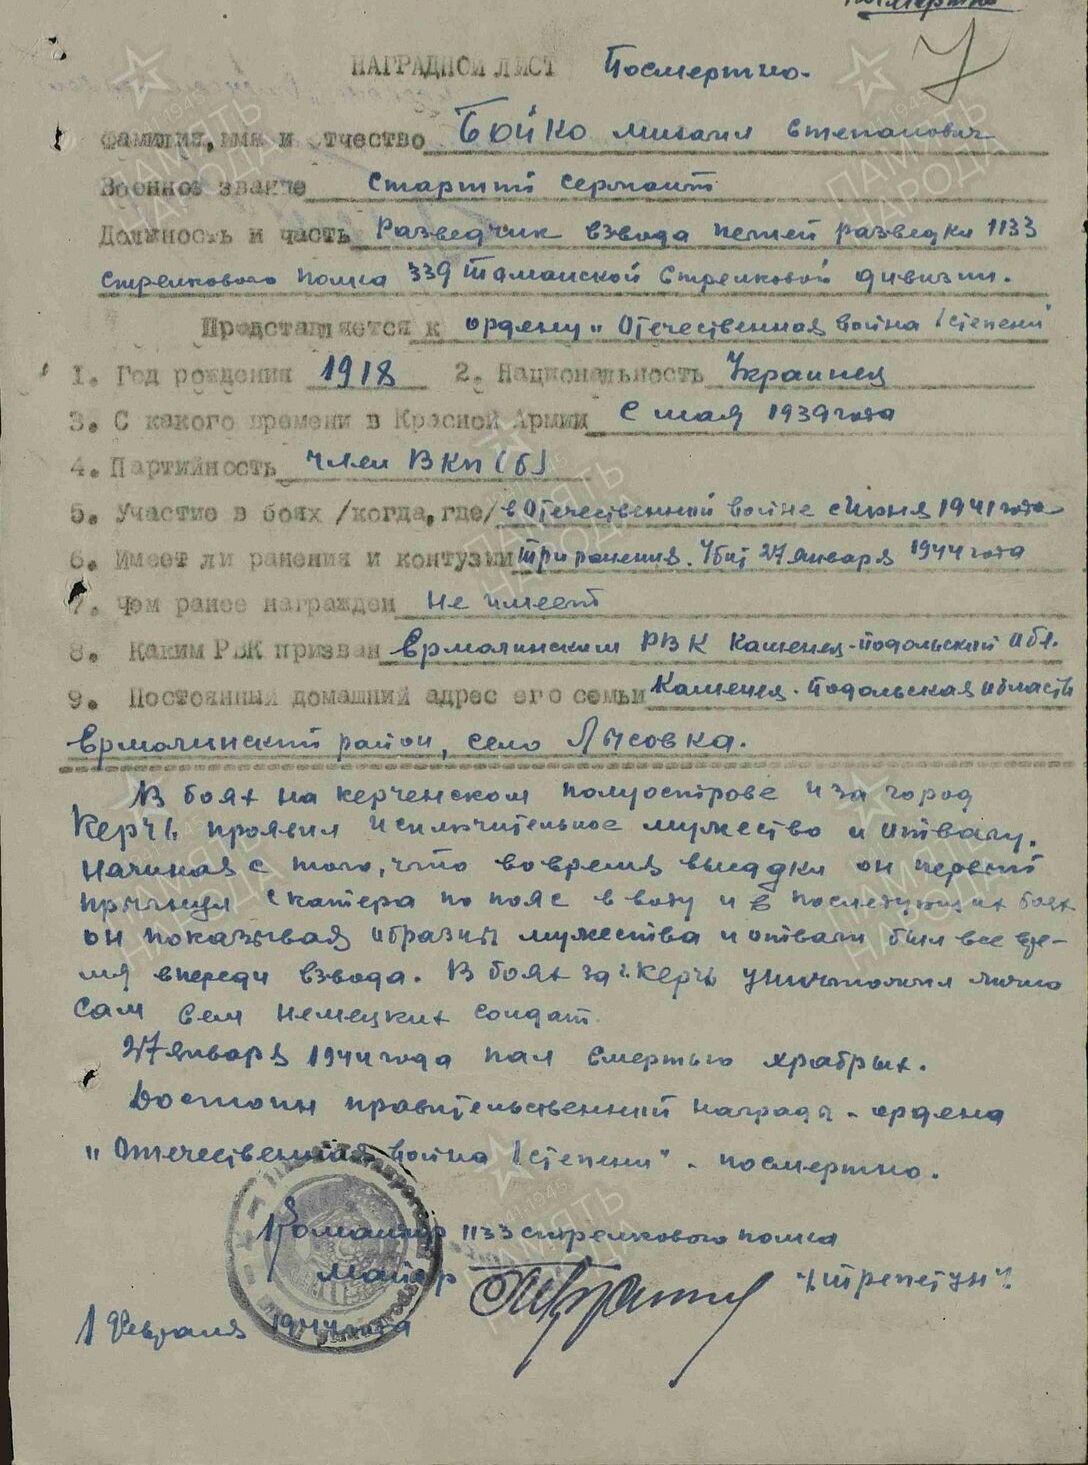 Посмертно
7
НАГРАДНОЙ ЛИСТ Посмертно.
Фамилия, имя и отчество Бойко Михаил Степанович
Военное звание Старший сержант
Должность и часть Разведчик взвода пешей разведки 1133
стрелкового полка 339 Таманской стрелковой дивизии.
Представляется к ордену „Отечественная война I степени"
1. Год рождения 1918 2. Национальность Украинец
3. С какого времени в Красной Армии С мая 1939 года
4. Партийность член ВКП(б)
5. Участие в боях /когда, где/ в Отечественной войне с Июня 1941 года
6. Имеет ли ранения и контузии три ранения. Убит 27 января 1944 года
7. Чем ранее награжден Не имеет
8. Каким РВК призван Ермолинским РВК Каменец-Подольский обл.
9. Постоянный домашний адрес его семьи Каменец-Подольская область
Ермолинский район, село Лысовка.
В боях на керченском полуострове и за город
Керчь проявил исключительное мужество и отвагу.
Начиная с того, что во время высадки он первый
прыгнул с катера по пояс в воду и в последующих боях
он показывая образцы мужества и отваги был все вре-
мя впереди взвода. В боях за г. Керчь уничтожил лично
сам сем немецких солдат.
27 января 1944 года пал смертью храбрых.
Достоин правительственной награды - ордена
„Отечественная война I степени" - посмертно.
Командир 1133 стрелкового полка
Майор /Шрепетун/.
1 Февраля 1944 года